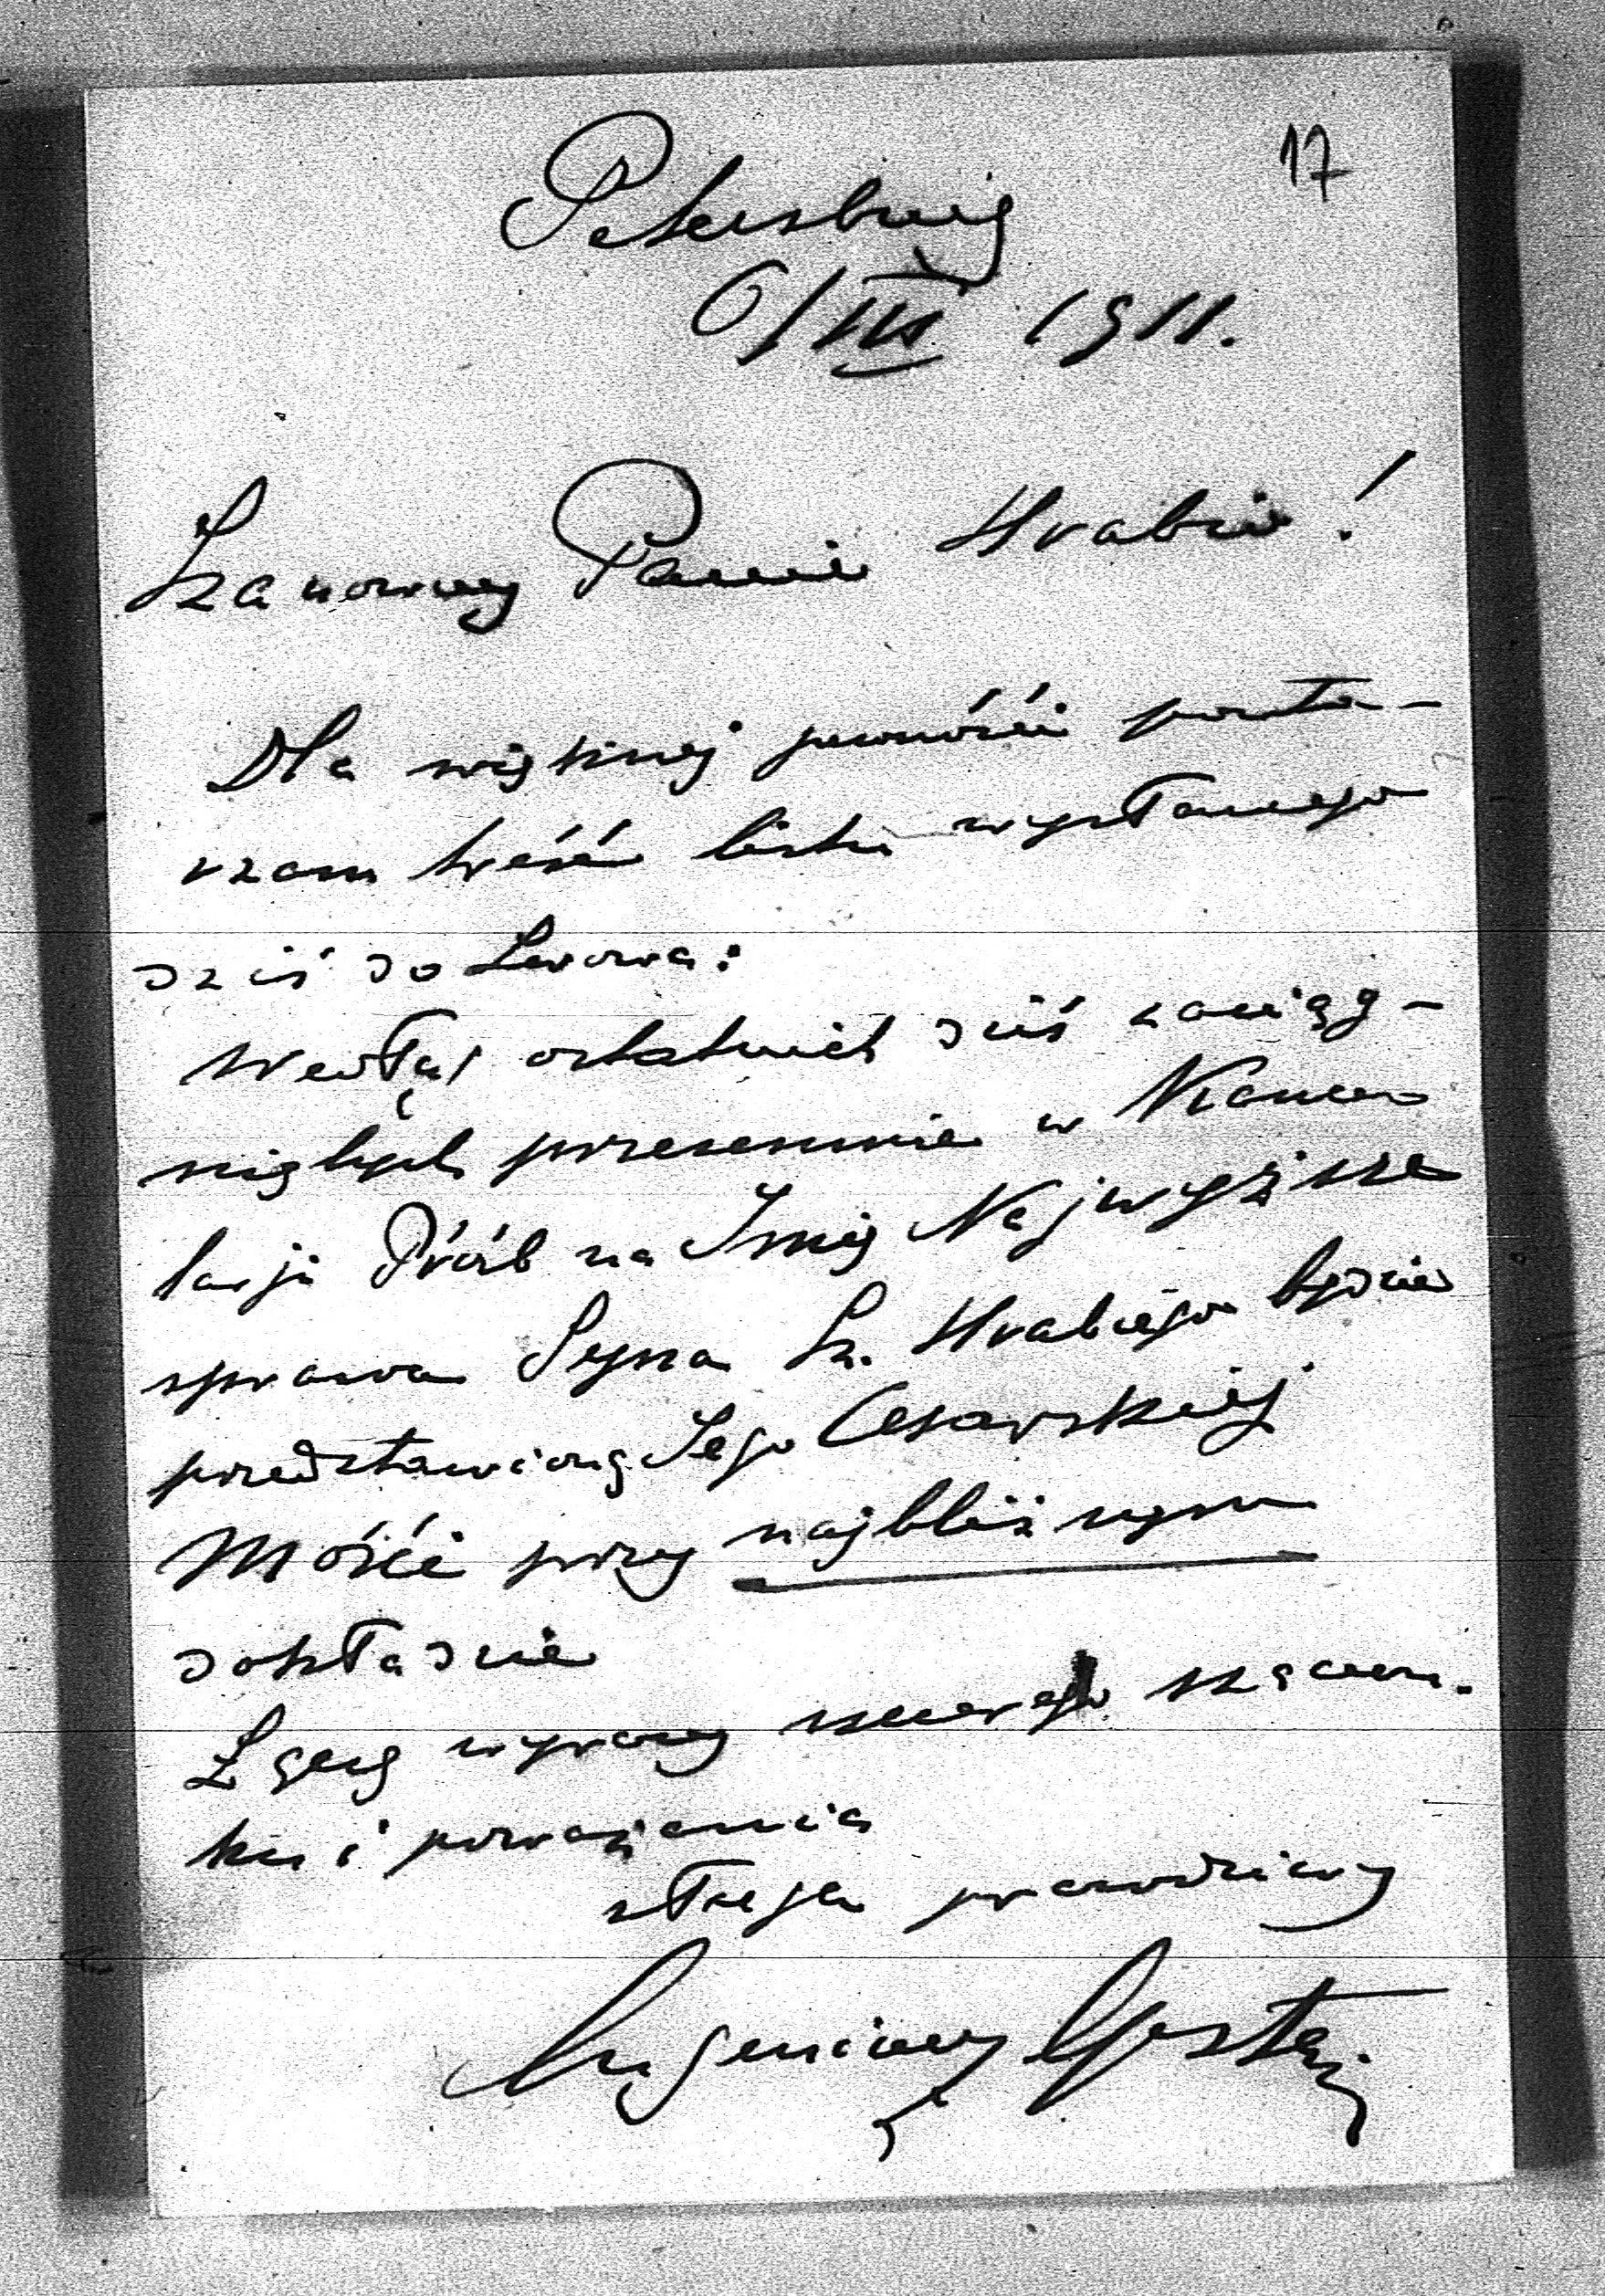 17
Petersburg
6/III 1911.
Szanowny Panie Hrabio!
Dla większej pewności powta-
rzam treść listu wysłanego
dziś do Lwowa:
Według ostatnich dziś zaciąg-
niętych przezemnie w Kance-
larji Próśb na Imię Najwyższe
sprawa Syna Sz. Hrabiego będzie
przedstawioną Jego Cesarskiej
Mości przy najbliższym
dokładzie
Łączę wyrazy szczerego szacun-
ku i poważania
sługa prawdziwy
Eugeniusz